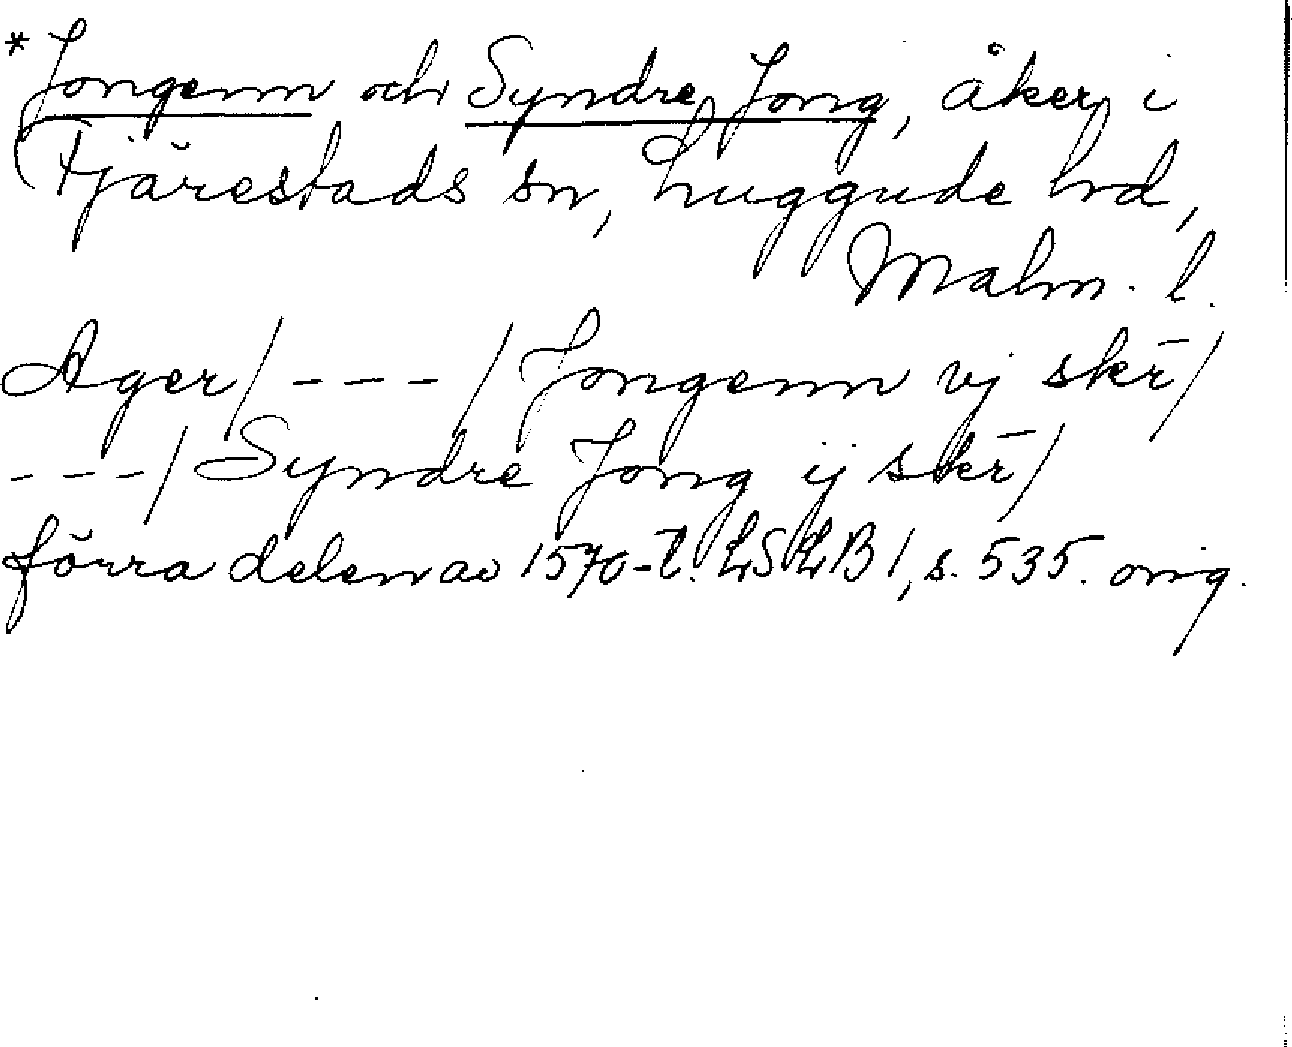 *Jongenn och Syndre Jong, åker i
Fjärestads sn, Luggude hd,
Malm. l.
Ager/ - - - / Jongenn vj skr̄/
- - - / Syndre Jong ij skr̄/
förra delen av 1570-t. LSLB 1, s. 535. orig.